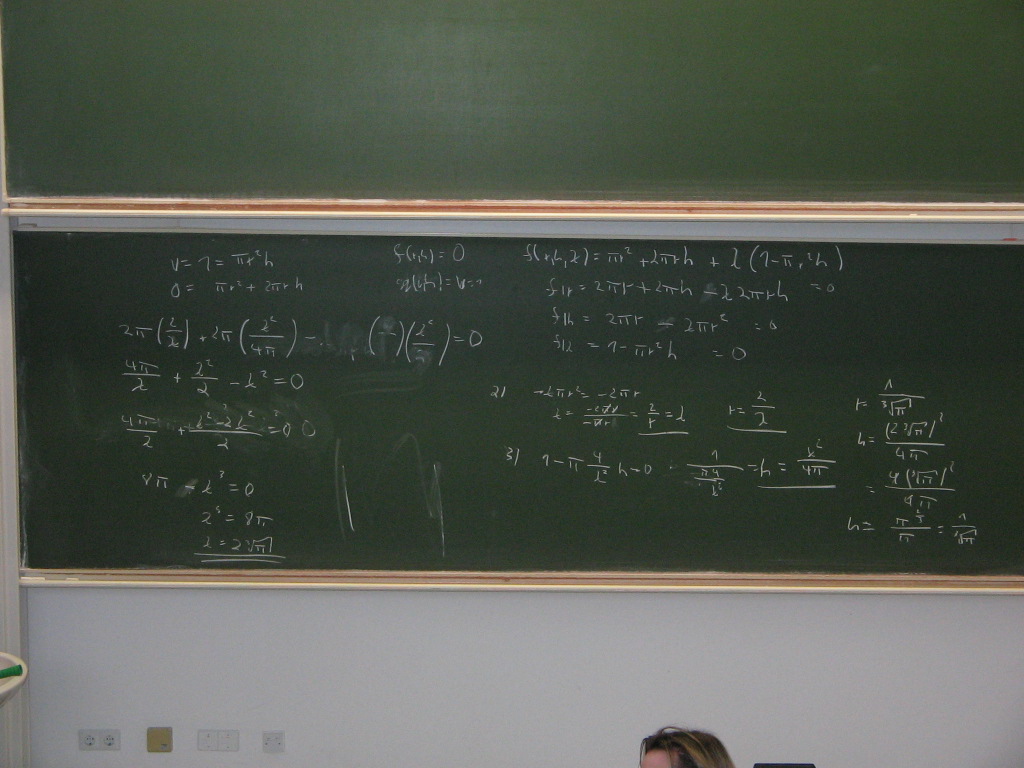 V = 1 = πr²h
O = πr² + 2πrh
f(r,h) = O
2π(2/λ) + 2π(λ²/4π) -
= 0
4π/λ + λ²/2 - λ² = 0
4π/λ + λ² - 2λ²/2 = 0
8π - λ³ = 0
λ³ = 8π
λ = 2∛π
f(r,h,λ) = πr² + 2πrh + λ(1 - πr²h)
f|r = 2πr + 2πh - λ2πrh = 0
f|h = 2πr - λπr² = 0
f|λ = 1 - πr²h = 0
2) -λπr² = -2πr
λ = -2πr/-πr² = 2/r = λ r = 2/λ
3) 1 - π 4/λ² h = 0 1/(π4/λ²) = h = λ²/4π
r = 1/∛π
h = (2∛π)²/4π
= 4(∛π)²/4π
h = π^⅔/π = 1/∛π